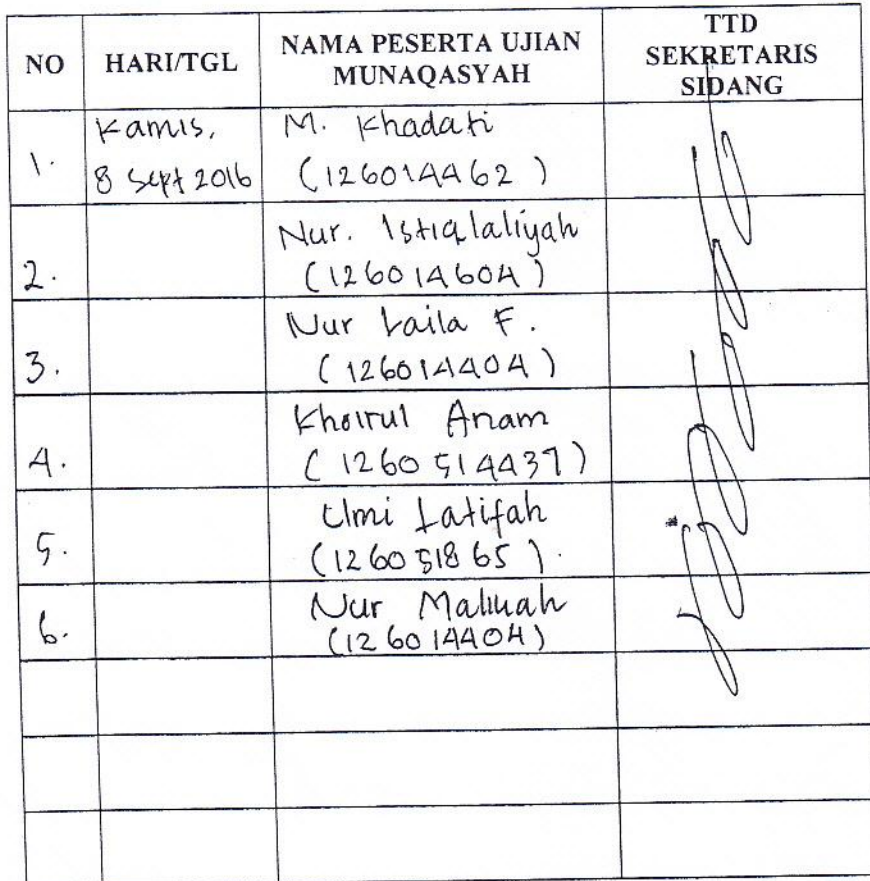 NO HARI/TGL NAMA PESERTA UJIAN MUNAQASYAH TTD SEKRETARIS SIDANG
1. Kamis, M. Khadafi
8 Sept 2016 (126014462)
Nur. Istiqlaliyah
2. (126014604)
Nur Laila F.
3. (126014404)
Khoirul Anam
4. (1260514437)
Umi Latifah
5. (126051865).
Nur
6. (126014404)